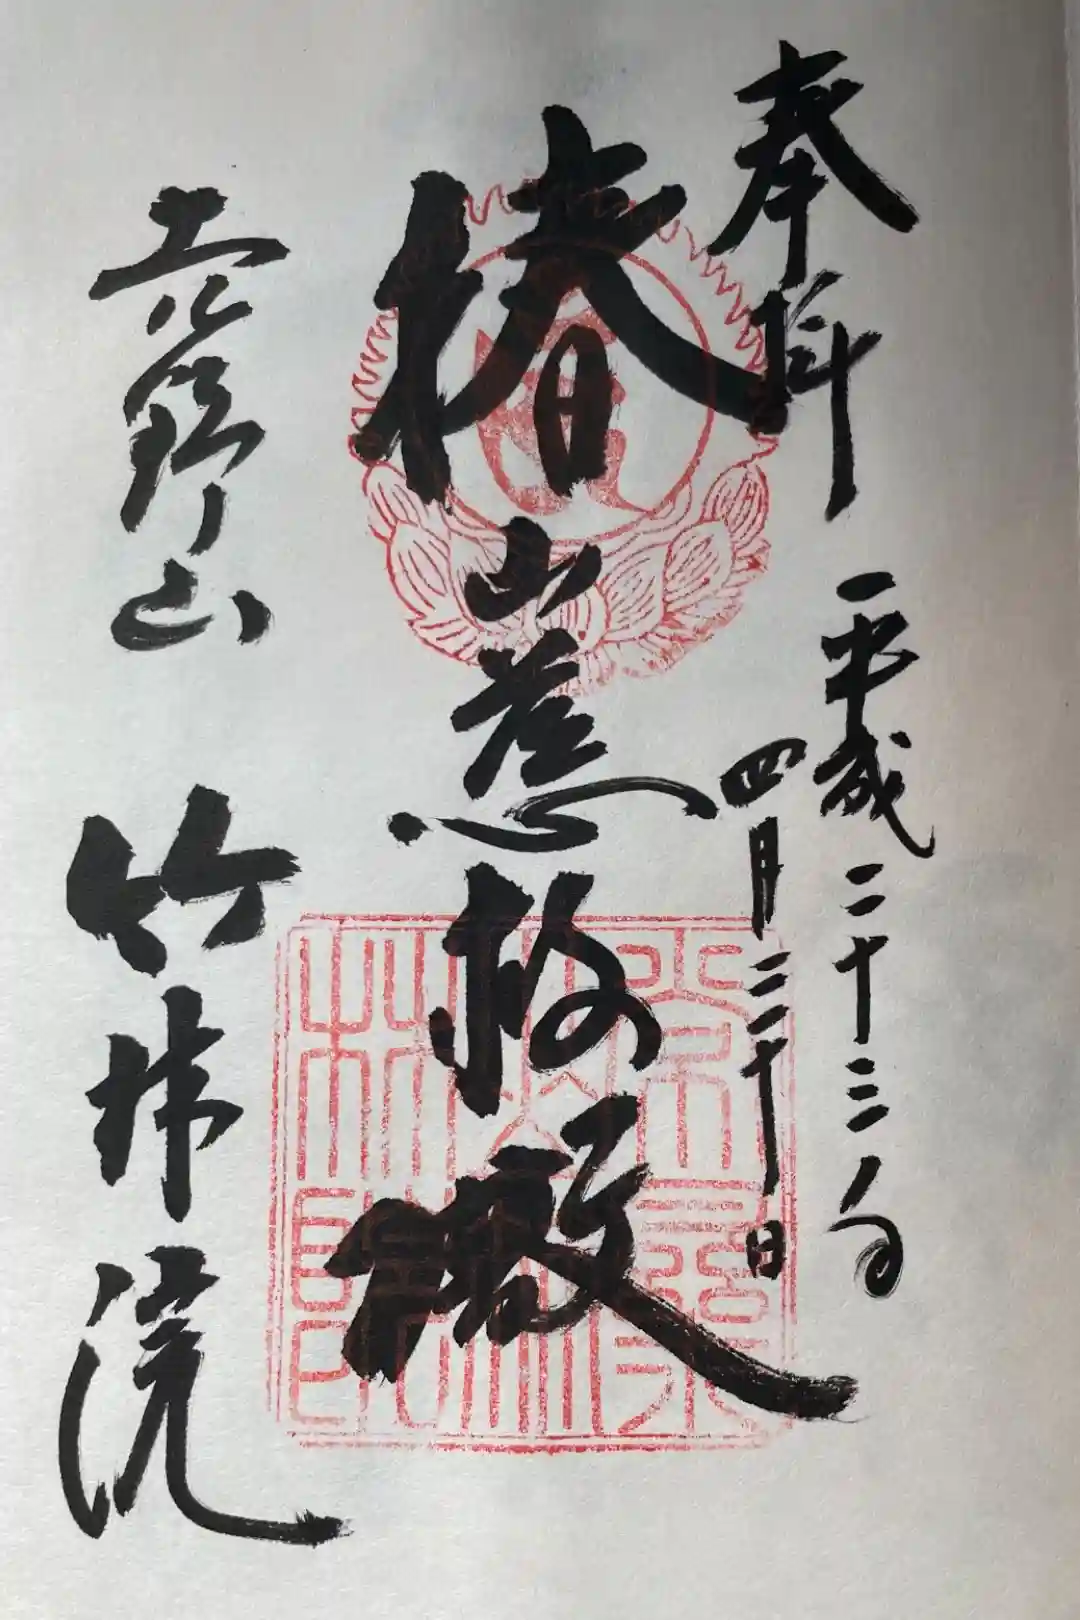 奉拝 平成二十三年
四月三十日
椿山慈救殿
高野山 竹林院